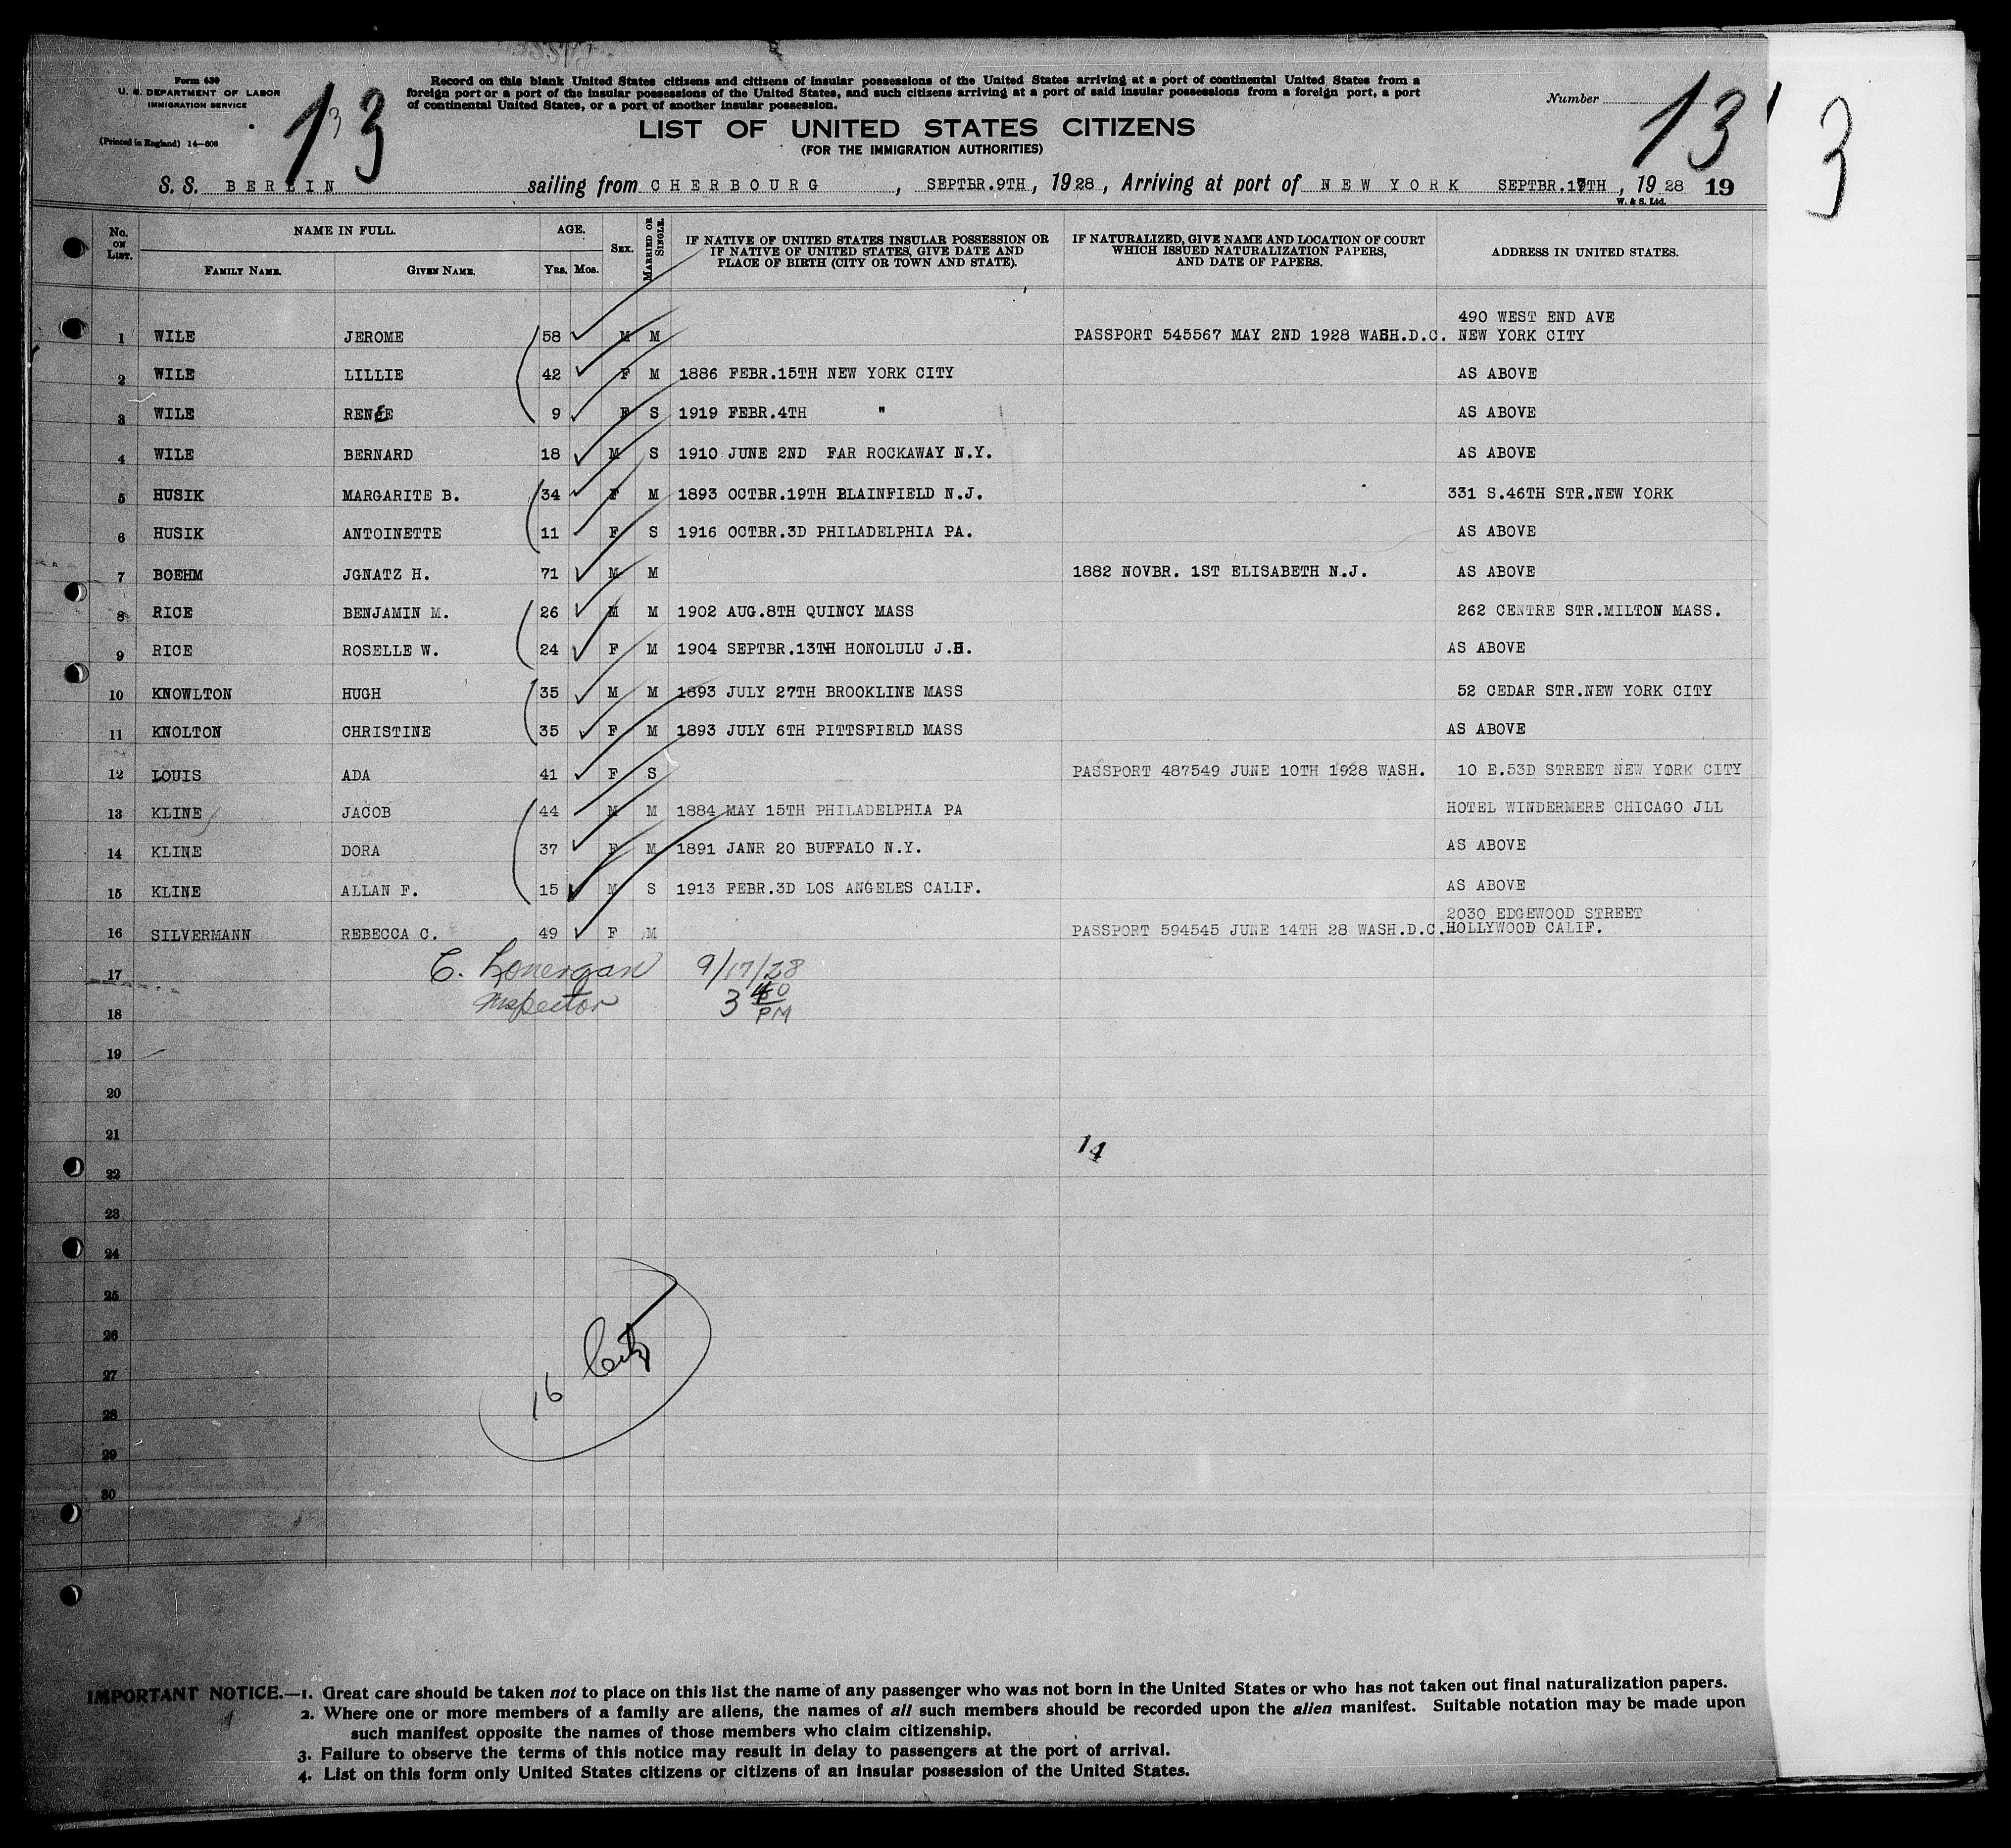 Form 630
U. S. DEPARTMENT OF LABOR
IMMIGRATION SERVICE
(Printed in England) 14—606
13
3
Record on this blank United States citizens and citizens of insular possessions of the United States arriving at a port of continental United States from a
foreign port or a port of the insular possessions of the United States, and such citizens arriving at a port of said insular possessions from a foreign port, a port
of continental United States, or a port of another insular possession.
LIST OF UNITED STATES CITIZENS
(FOR THE IMMIGRATION AUTHORITIES)
Number
13
3
S. S. BERLIN sailing from CHERBOURG, SEPTBR.9TH, 1928, Arriving at port of NEW YORK SEPTBR.17TH, 1928 19
W. & S. Ltd.
No. ON LIST. NAME IN FULL. FAMILY NAME. GIVEN NAME. AGE. YRS. MOS. SEX. MARRIED OR SINGLE. IF NATIVE OF UNITED STATES INSULAR POSSESSION OR IF NATIVE OF UNITED STATES, GIVE DATE AND PLACE OF BIRTH (CITY OR TOWN AND STATE). IF NATURALIZED, GIVE NAME AND LOCATION OF COURT WHICH ISSUED NATURALIZATION PAPERS, AND DATE OF PAPERS. ADDRESS IN UNITED STATES.
490 WEST END AVE
1 WILE JEROME 58 M M PASSPORT 545567 MAY 2ND 1928 WASH.D.C. NEW YORK CITY
2 WILE LILLIE 42 F M 1886 FEBR.15TH NEW YORK CITY AS ABOVE
3 WILE RENEE 9 F S 1919 FEBR.4TH " AS ABOVE
4 WILE BERNARD 18 M S 1910 JUNE 2ND FAR ROCKAWAY N.Y. AS ABOVE
5 HUSIK MARGARITE B. 34 F M 1893 OCTBR.19TH BLAINFIELD N.J. 331 S.46TH STR.NEW YORK
6 HUSIK ANTOINETTE 11 F S 1916 OCTBR.3D PHILADELPHIA PA. AS ABOVE
7 BOEHM JGNATZ H. 71 M M 1882 NOVBR. 1ST ELISABETH N.J. AS ABOVE
8 RICE BENJAMIN M. 26 M M 1902 AUG.8TH QUINCY MASS 262 CENTRE STR.MILTON MASS.
9 RICE ROSELLE W. 24 F M 1904 SEPTBR.13TH HONOLULU J.H. AS ABOVE
10 KNOWLTON HUGH 35 M M 1893 JULY 27TH BROOKLINE MASS 52 CEDAR STR.NEW YORK CITY
11 KNOLTON CHRISTINE 35 F M 1893 JULY 6TH PITTSFIELD MASS AS ABOVE
12 LOUIS ADA 41 F S PASSPORT 487549 JUNE 10TH 1928 WASH. 10 E.53D STREET NEW YORK CITY
13 KLINE JACOB 44 M M 1884 MAY 15TH PHILADELPHIA PA HOTEL WINDERMERE CHICAGO JLL
14 KLINE DORA 37 F M 1891 JANR 20 BUFFALO N.Y. AS ABOVE
15 KLINE ALLAN F. 15 M S 1913 FEBR.3D LOS ANGELES CALIF. AS ABOVE
2030 EDGEWOOD STREET
16 SILVERMANN REBECCA C. 49 F M PASSPORT 594545 JUNE 14TH 28 WASH.D.C. HOLLYWOOD CALIF.
17 C. Lonergan 9/17/28
Inspector 3 40 PM
18
19
20
21
14
22
23
24
25
26
16 Citz
27
28
29
30
IMPORTANT NOTICE.—1. Great care should be taken not to place on this list the name of any passenger who was not born in the United States or who has not taken out final naturalization papers.
2. Where one or more members of a family are aliens, the names of all such members should be recorded upon the alien manifest. Suitable notation may be made upon
such manifest opposite the names of those members who claim citizenship.
3. Failure to observe the terms of this notice may result in delay to passengers at the port of arrival.
4. List on this form only United States citizens or citizens of an insular possession of the United States.